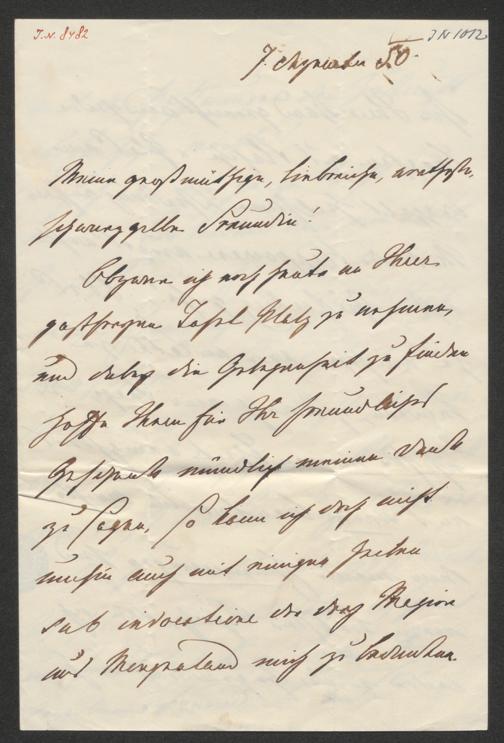 I.N. 8482
IN 1012
7. 50.
Meine großmüthige, liebreiche,
schwarzgelbe Freundin!
Obzwar ich noch heute an Ihrer
Tafel Platz zu nehmen,
und dabey die Gelegenheit zu finden
hoffe Ihnen für Ihr freundliches
Geschenk mündlich meinen Dank
zu sagen, so kann ich doch nicht
umhin auch mit einigen Zeilen
sub invocatione der drey
aus Morgenland mich zu bedanken.